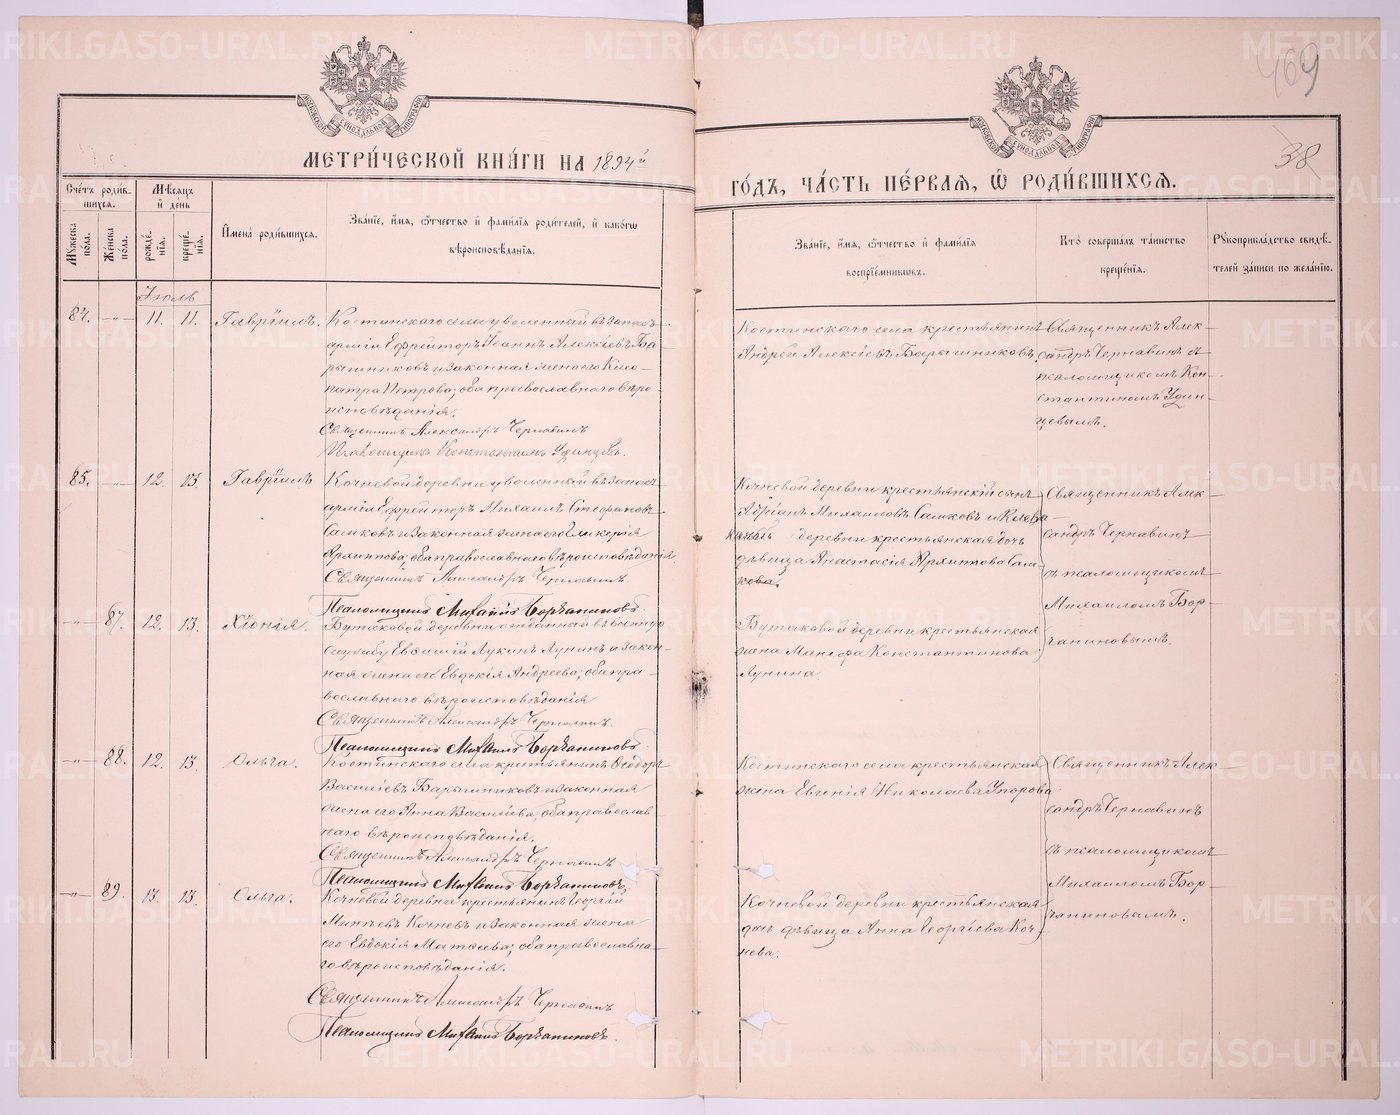 METRIKI.GASO-URAL.RU
469
38
МОСКОВСКОЙ СѴНОДАЛЬНОЙ ТИПОГРАФІИ
МОСКОВСКОЙ СѴНОДАЛЬНОЙ ТИПОГРАФІИ
МЕТРИ́ЧЕСКОЙ КНИ́ГИ НА 1894й
ГО́ДЪ, ЧА́СТЬ ПЕ́РВАѦ, Ѽ РОДИ́ВШИХСѦ.
Счéтъ роди́в-
шихсѧ.
Мѣ́сѧцъ
и҆ де́нь
Мꙋ́жеска по́ла.
Же́нска по́ла.
рожде́-
нїѧ.
креще́-
нїѧ.
И҆мена̀ роди́вшихсѧ.
Зва́нїе, и҆́мѧ, ѻ҆́тчество и҆ фами́лїѧ роди́телей, и҆ како́гѡ
вѣроисповѣ́данїѧ.
Зва́нїе, и҆́мѧ, ѻ҆́тчество и҆ фами́лїѧ
воспрїе́мникѡвъ.
Кто̀ соверша́лъ та́инство
креще́нїѧ.
Рꙋкоприкла́дство свидѣ́-
телей за́писи по жела́нїю.
Іюль
84. -"- 11. 11. Гавріилъ.
Костинскаго села уволенный въ запасъ
арміи Ефрейторъ Іоаннъ Алексіевъ Ба-
рышниковъ и законная жена его Клео-
патра Петрова; оба православнаго вѣро-
исповѣданія.
Священникъ Александръ Чернавинъ
Псаломщикъ Константинъ Удинцевъ.
Костинскаго села крестьянинъ
Андрей Алексіевъ Барышниковъ
Священникъ Алек-
сандръ Чернавинъ съ
псаломщикомъ Кон-
стантиномъ Удин-
цевымъ.
85. -"- 12. 13. Гавріилъ
Кочневой деревни уволенный въ запасъ
арміи Ефрейторъ Михаилъ Стефановъ
Самковъ и законная жена его Гликерія
Архипова; оба православнаго вѣроисповѣданія.
Священникъ Александръ Чернавинъ
Псаломщикъ Михаилъ Борчаниновъ
Кочневой деревни крестьянскій сынъ
Адріанъ Михаиловъ Самковъ и
деревни крестьянская дочь
дѣвица Анастасія Архиппова Сам-
кова.
Священникъ Алек-
сандръ Чернавинъ
съ псаломщикомъ
Михаиломъ Бор-
чаниновымъ.
-"- 87. 12. 13. Хіонія.
Бутаковой деревни отданный въ военную
службу Евѳимій Лукинъ Лунинъ и закон-
ная жена его Евдокія Андреева; оба пра-
вославнаго вѣроисповѣданія
Священникъ Александръ Чернавинъ.
Псаломщикъ Михаилъ Борчаниновъ.
Бутаковой деревни крестьянская
жена Манефа Константинова
Лунина.
-"- 88. 12. 13. Ольга.
Костинскаго села крестьянинъ Ѳеодоръ
Василіевъ Барышниковъ и законная
жена его Анна Василіева; оба православ-
наго вѣроисповѣданія.
Священникъ Александръ Чернавинъ
Псаломщикъ Михаилъ Борчаниновъ.
Костинскаго села крестьянская
жена Евгенія Николаева Упорова
Священникъ Алек-
сандръ Чернавинъ
съ псаломщикомъ
Михаиломъ Бор-
чаниновымъ.
-"- 89. 13. 13. Ольга.
Кочневой деревни крестьянинъ Георгій
Минеевъ Кочневъ и законная жена
его Евдокія Матѳеева; оба православна-
го вѣроисповѣданія.
Священникъ Александръ Чернавинъ
Псаломщикъ Михаилъ Борчаниновъ.
Кочневой деревни крестьянская
дочь дѣвица Анна Георгіева Коч-
нева.